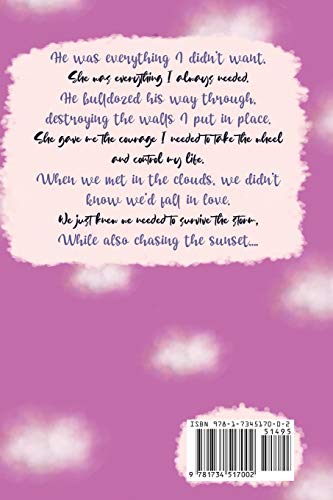 He was everything I didn't want.
She was everything I always needed.
He bulldozed his way through,
destroying the walls I put in place.
She gave me the courage I needed to take the wheel
and control my life.
When we met in the clouds, we didn't
know we'd fall in love.
We just knew we needed to survive the storm,
While also chasing the sunset....
ISBN 978-1-7345170-0-2
51495
9 781734 517002